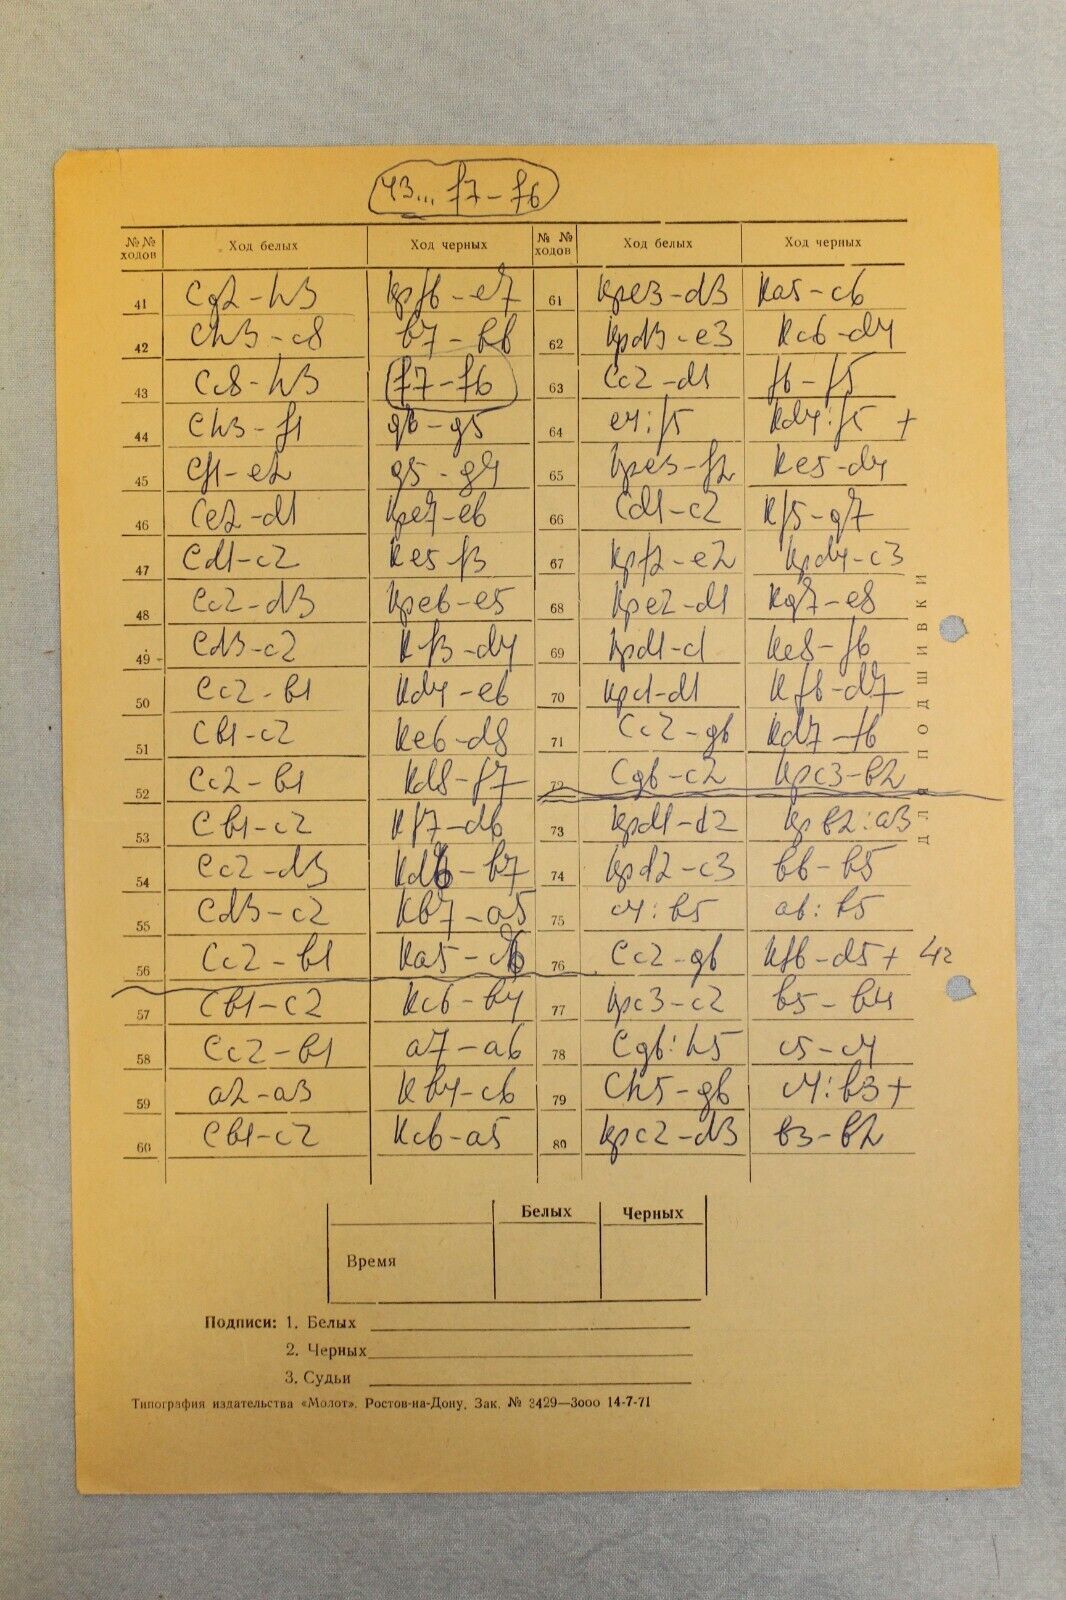 43... f7-f6
№№ ходов Ход белых Ход черных № № ходов Ход белых Ход черных
41 Cg2-h3 Крf6-e7 61 Крe3-d3 Кa5-c6
42 Ch3-c8 b7-b6 62 Крd3-e3 Кc6-d4
43 Cc8-h3 f7-f6 63 Cc2-d1 f6-f5
44 Ch3-f1 g6-g5 64 e4:f5 Кd4:f5+
45 Cf1-e2 g5-g4 65 Крe3-f2 Кe5-d4
46 Ce2-d1 Крe7-e6 66 Cd1-c2 Кf5-g7
47 Cd1-c2 Кe5-f3 67 Крf2-e2 Крd4-c3
48 Cc2-d3 Крe6-e5 68 Крe2-d1 Кg7-e8
49 Cd3-c2 Кf3-d4 69 Крd1-c1 Кe8-f6
50 Cc2-b1 Кd4-e6 70 Крc1-d1 Кf6-d7
51 Cb1-c2 Кe6-d8 71 Cc2-g6 Кd7-f6
52 Cc2-b1 Кd8-f7 72 Cg6-c2 Крc3-b2
53 Cb1-c2 Кf7-d6 73 Крd1-d2 Крb2:a3
54 Cc2-d3 Кd6-b7 74 Крd2-c3 b6-b5
55 Cd3-c2 Кb7-a5 75 c4:b5 a6:b5
56 Cc2-b1 Кa5-c6 76 Cc2-g6 Кf6-d5+
57 Cb1-c2 Кc6-b4 77 Крc3-c2 b5-b4
58 Cc2-b1 a7-a6 78 Cg6:h5 c5-c4
59 a2-a3 Кb4-c6 79 Ch5-g6 c4:b3+
60 Cb1-c2 Кc6-a5 80 Крc2-d3 b3-b2
ДЛЯ ПОДШИВКИ
Белых Черных
Время
Подписи: 1. Белых
2. Черных
3. Судьи
Типография издательства «Молот». Ростов-на-Дону, Зак. № 3429—3000 14-7-71